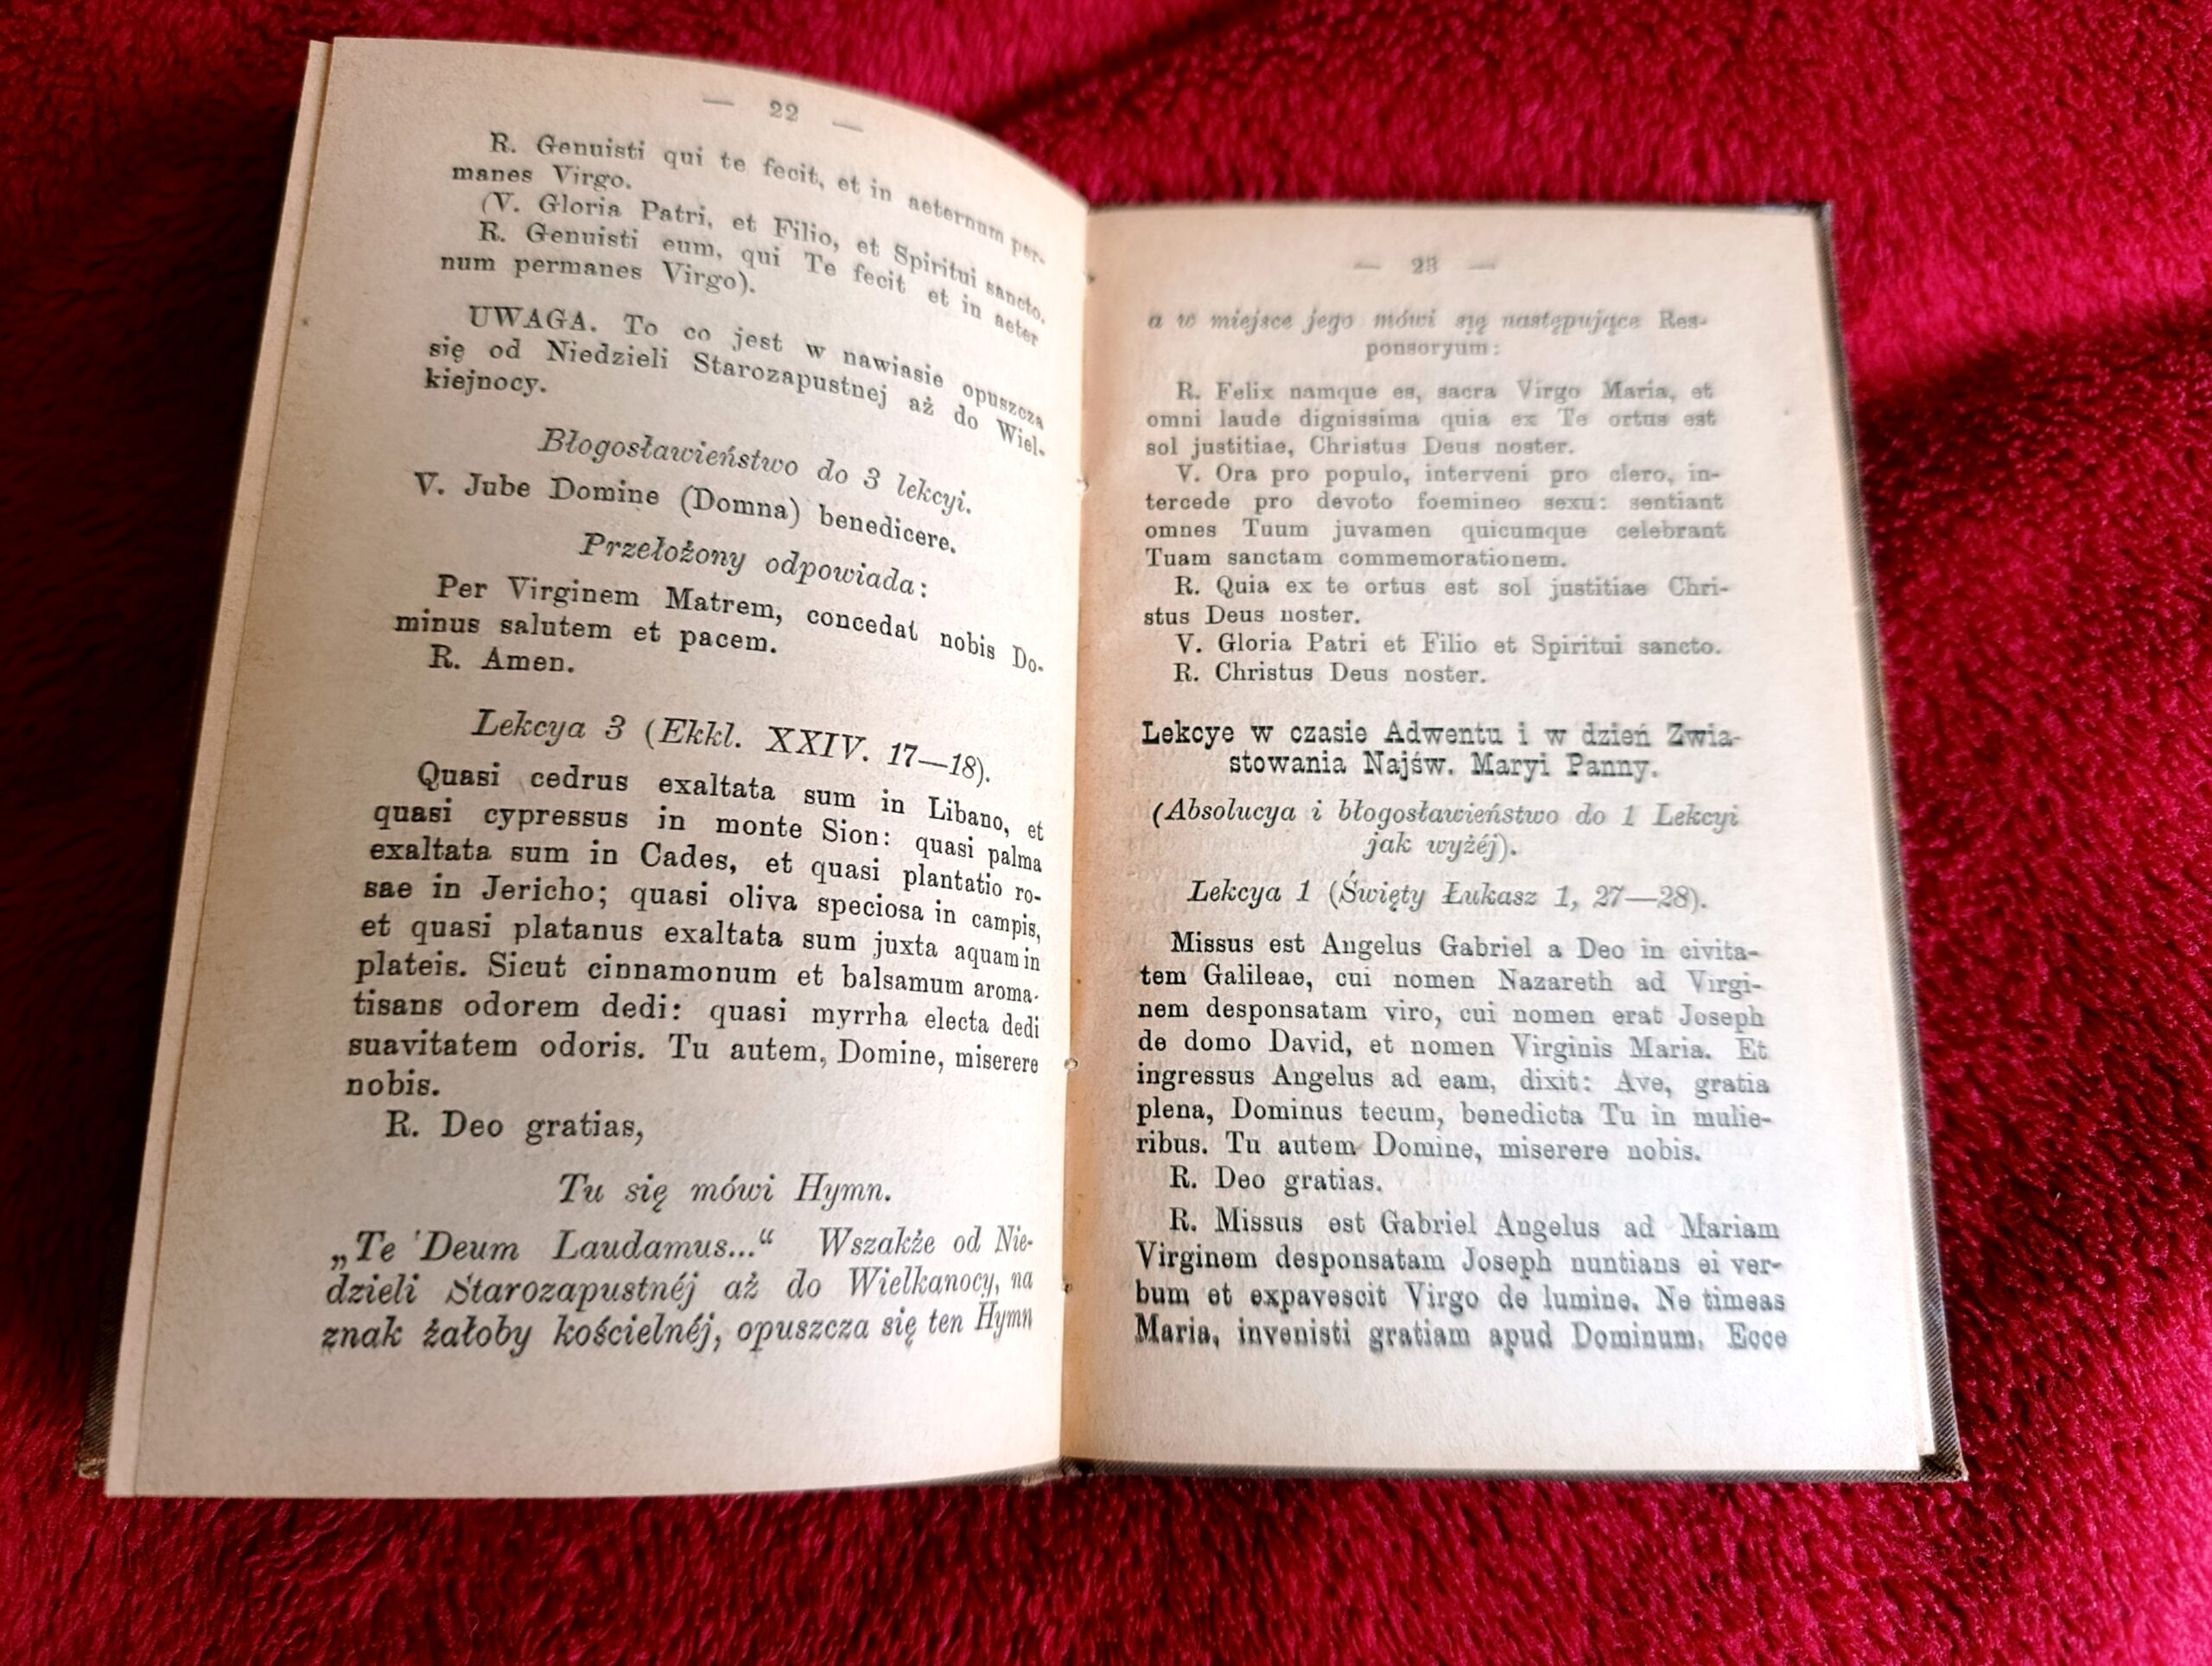 — 22 —
R. Genuisti qui te fecit, et in aeternum per-
manes Virgo.
(V. Gloria Patri, et Filio, et Spiritui sancto.
R. Genuisti eum, qui Te fecit et in aeter
num permanes Virgo).
UWAGA. To co jest w nawiasie opuszcza
się od Niedzieli Starozapustnej aż do Wiel-
kiejnocy.
Błogosławieństwo do 3 lekcyi.
V. Jube Domine (Domna) benedicere.
Przełożony odpowiada:
Per Virginem Matrem, concedat nobis Do-
minus salutem et pacem.
R. Amen.
Lekcya 3 (Ekkl. XXIV. 17—18).
Quasi cedrus exaltata sum in Libano, et
quasi cypressus in monte Sion: quasi palma
exaltata sum in Cades, et quasi plantatio ro-
sae in Jericho; quasi oliva speciosa in campis,
et quasi platanus exaltata sum juxta aquam in
plateis. Sicut cinnamonum et balsamum aroma-
tisans odorem dedi: quasi myrrha electa dedi
suavitatem odoris. Tu autem, Domine, miserere
nobis.
R. Deo gratias,
Tu się mówi Hymn.
„Te Deum Laudamus...“ Wszakże od Nie-
dzieli Starozapustnéj aż do Wielkanocy, na
znak żałoby kościelnéj, opuszcza się ten Hymn
— 23 —
a w miejsce jego mówi się następujące Res-
ponsoryum:
R. Felix namque es, sacra Virgo Maria, et
omni laude dignissima quia ex Te ortus est
sol justitiae, Christus Deus noster.
V. Ora pro populo, interveni pro clero, in-
tercede pro devoto foemineo sexu: sentiant
omnes Tuum juvamen quicumque celebrant
Tuam sanctam commemorationem.
R. Quia ex te ortus est sol justitiae Chri-
stus Deus noster.
V. Gloria Patri et Filio et Spiritui sancto.
R. Christus Deus noster.
Lekcye w czasie Adwentu i w dzień Zwia-
stowania Najśw. Maryi Panny.
(Absolucya i błogosławieństwo do 1 Lekcyi
jak wyżéj).
Lekcya 1 (Święty Łukasz 1, 27—28).
Missus est Angelus Gabriel a Deo in civita-
tem Galileae, cui nomen Nazareth ad Virgi-
nem desponsatam viro, cui nomen erat Joseph
de domo David, et nomen Virginis Maria. Et
ingressus Angelus ad eam, dixit: Ave, gratia
plena, Dominus tecum, benedicta Tu in mulie-
ribus. Tu autem Domine, miserere nobis.
R. Deo gratias.
R. Missus est Gabriel Angelus ad Mariam
Virginem desponsatam Joseph nuntians ei ver-
bum et expavescit Virgo de lumine. Ne timeas
Maria, invenisti gratiam apud Dominum. Ecce